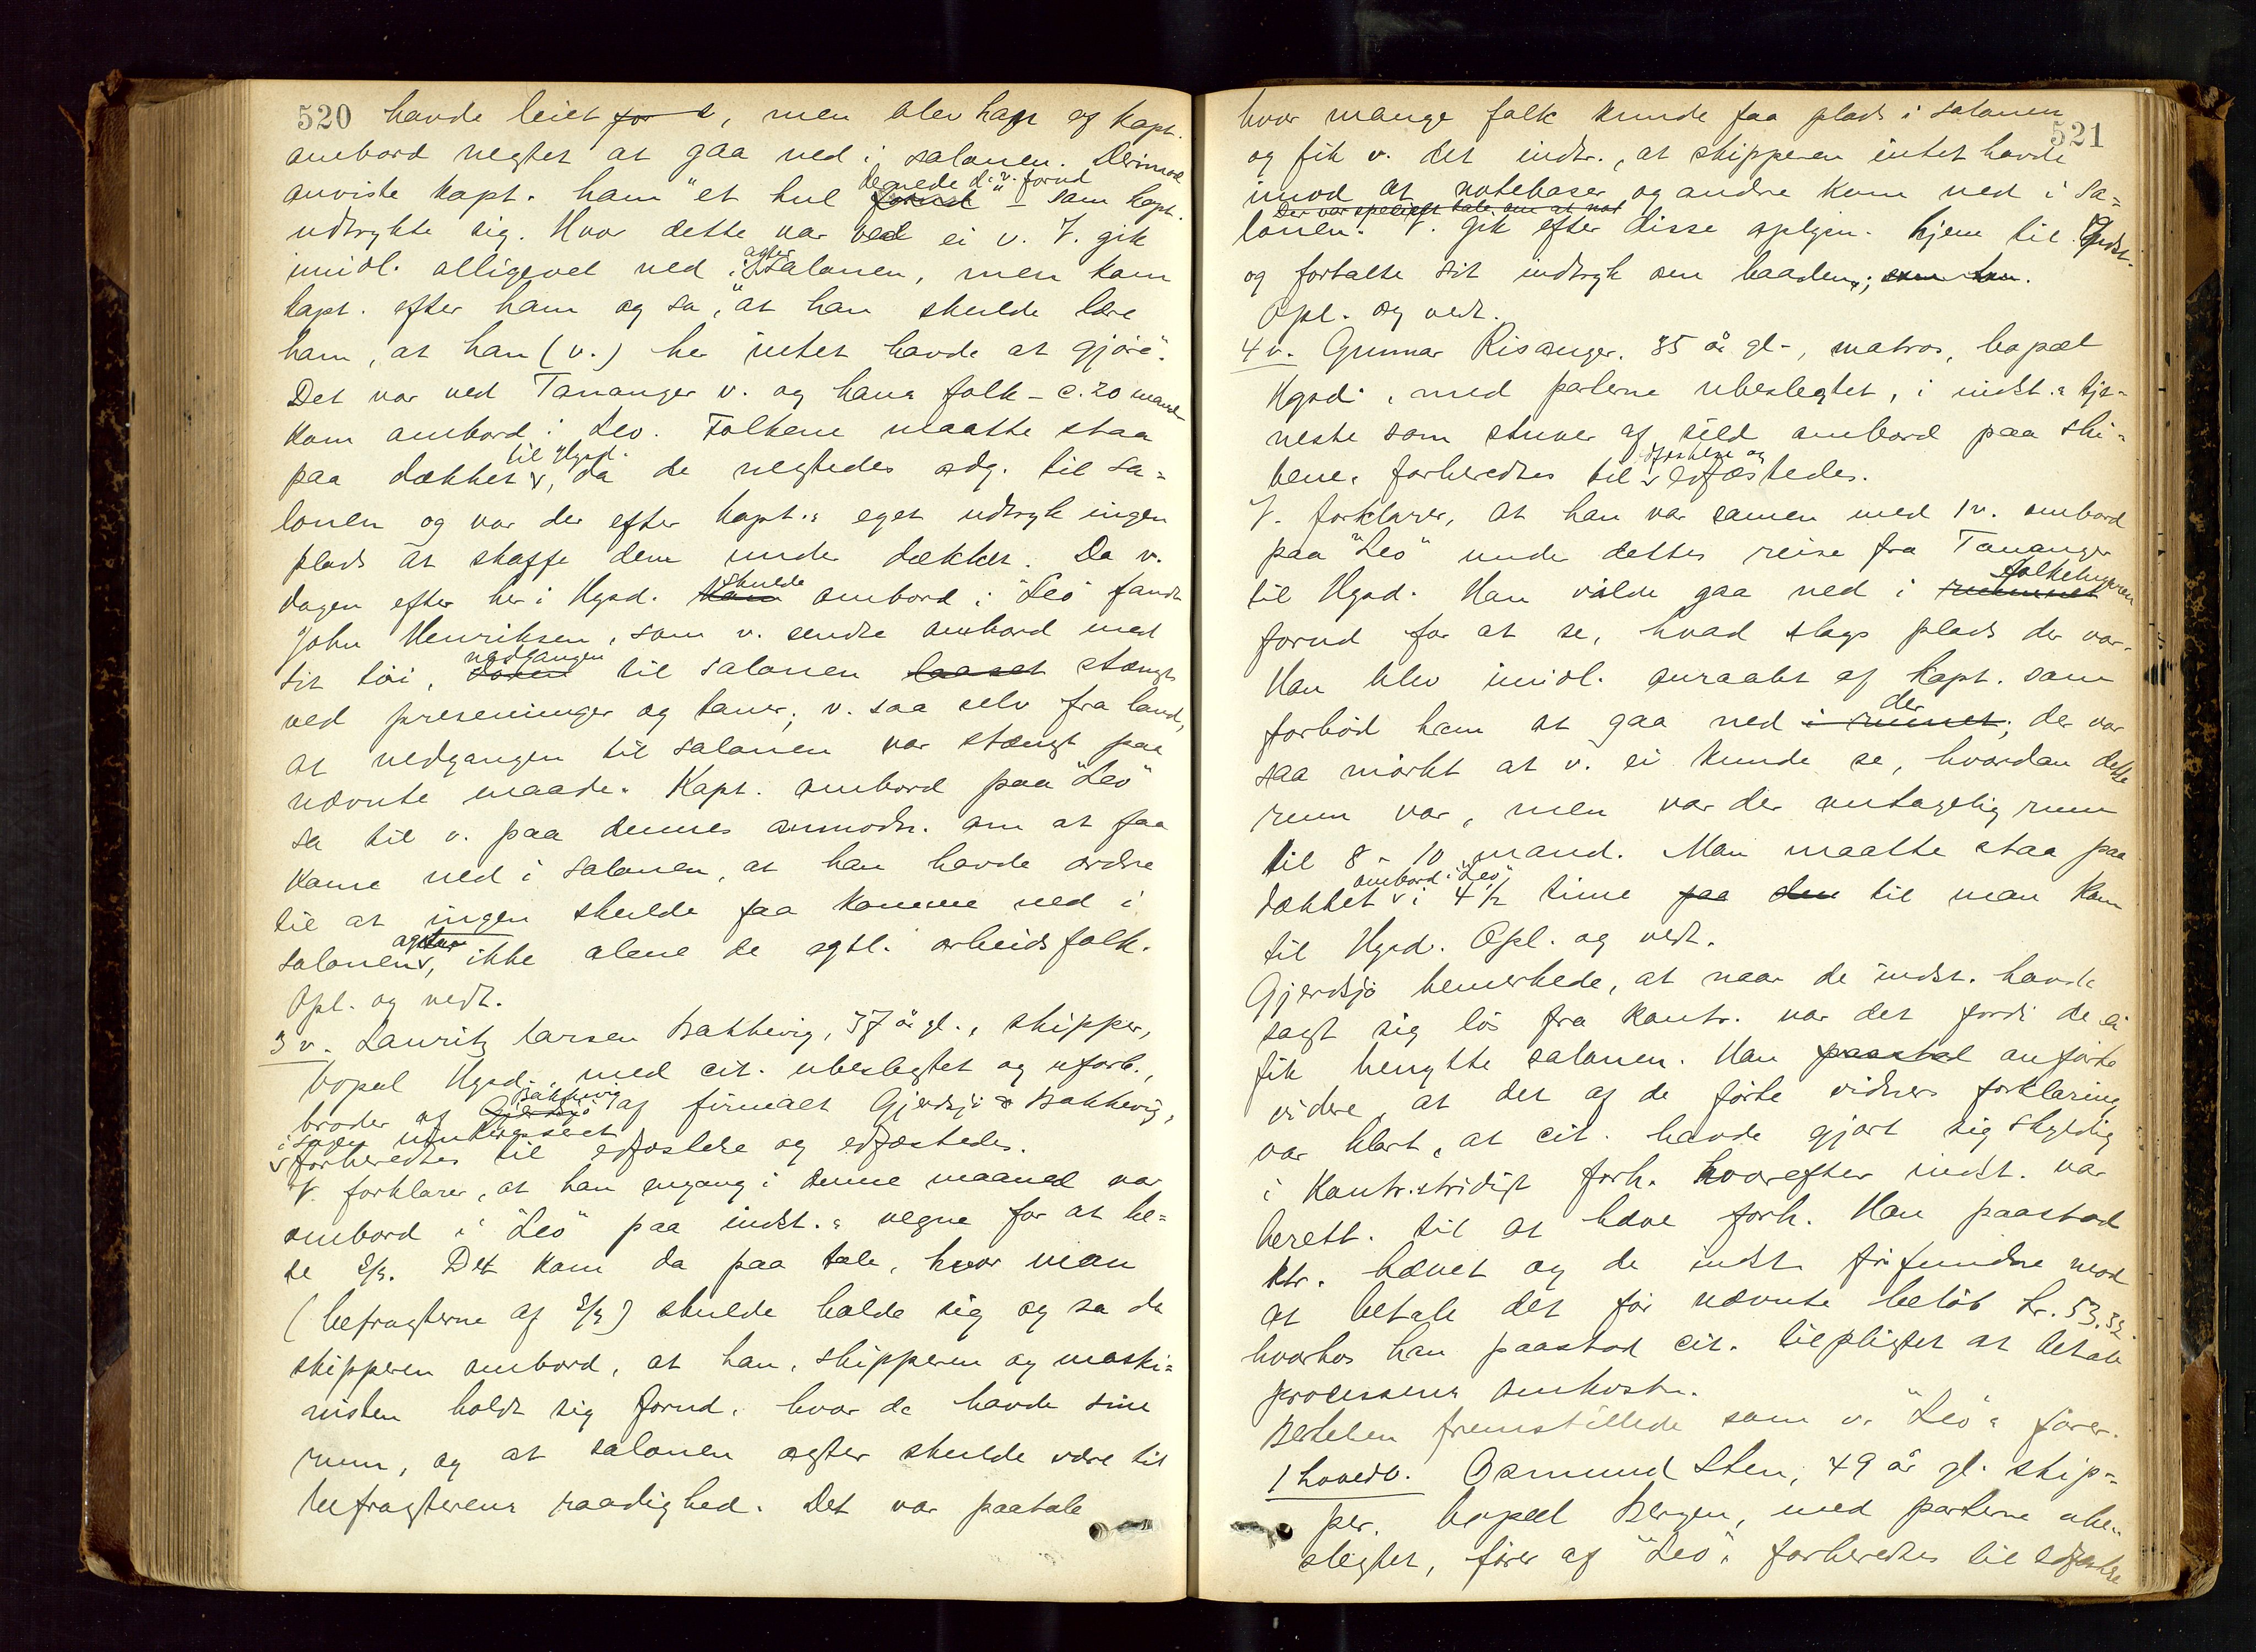 520 havde leiet for d, men blev han af kapt.
ombord negtet at gaa ned i salonen. Derimod
anviste kapt. ham "et hul dernede d. v. forud" – som kapt.
udtrykte sig. Hvor dette var ved ei v. V. gik
imidl. alligevel ned i agter salonen, men kom
kapt. efter ham og sa, "at han skulde lære
ham, at han (v.) her intet havde at gjøre".
Det var ved Tananger v. og hans folk – c. 20 mand
kom ombord i Leo. Folkene maatte staa
paa dækket til Hgsd., da de negtedes adg. til sa=
lonen og var der efter kapt.s eget udtryk ingen
plads at skaffe dem under dækket. Da v.
dagen efter her i Hgsd. kom skulde ombord i "Leo" fandt
John Henriksen, som v. sendte ombord med
sit tøi, døren nedgangen til salonen laaset stængt
ved preseninger og tauer; v. saa selv fra land,
at nedgangen til salonen var stængt paa
nævnte maade. Kapt. ombord paa "Leo"
sa til v. paa dennes anmodn. om at faa
komme ned i salonen, at han havde ordre
til at ingen skulde faa komme ned i
salonen agter, ikke alene de egtl. arbeidsfolk.
Opl. og vedt.
3 v. Lauritz Larsen Bakkevig, 37 år gl., skipper,
bopæl Hgsd., med cit. ubeslegtet og uforb.,
broder af Gjerdsjø Bakkevig af firmaet Gjerdsjø & Bakkevig,
i sagen uinteresseret
forberedtes til edfæstelse og edfæstedes.
V. forklarer, at han engang i denne maaned var
ombord i "Leo" paa indst.s vegne for at be=
se S/S. Det kom da paa tale, hvor man
(befragterne af S/S) skulde holde sig og sa da
skipperen ombord, at han, skipperen og maski=
nisten holdt sig forud, hvor de havde sine
rum, og at salonen agter skulde være til
befragterens raadighed. Det var paatale
521
hvor mange folk kunde faa plads i salonen
og fik v. det indtr., at skipperen intet havde
imod at notebaser og andre kom ned i sa=
Der var specielt tale om at not
lonen. V. gik efter disse oplysn. hjem til indst.
og fortalte sit indtryk om baaden; som han.
Opl. og vedt.
4 v. Gunnar Risanger, 35 år gl., matros, bopæl
Hgsd., med parterne ubeslegtet, i indst.s tje=
neste som stuver af sild ombord paa ski=
bene. forberedtes til edfæstelse og edfæstedes.
V. forklarer, at han var samen med 1 v. ombord
paa "Leo" under dettes reise fra Tananger
til Hgsd. Han vilde gaa ned i rummet folkelugaren
forud for at se, hvad slags plads der var.
Han blev imidl. anraabt af kapt. som
forbød ham at gaa ned i rummet der; der var
saa mørkt at v. ei kunde se, hvordan dette
rum var, men var der antagelig rum
til 8 – 10 mand. Man maatte staa paa
dækket ombord i "Leo" i 4 1/2 time paa den til man kom
til Hgsd. Opl. og vedt.
Gjerdsjø bemerkede, at naar de indst. havde
sagt sig løs fra kontr. var det fordi de ei
fik benytte salonen. Han paastod anførte
videre, at det af de førte vidners forklaring
var klart, at cit. havde gjort sig skyldig
i kontr.stridigt forh. hvorefter indst. var
berett. til at hæve forh. Han paastod
ktr. hævet og de indst. frifundne mod
at betale det før nævnte beløb kr. 53.32
hvorhos han paastod cit. tilpligtet at betale
processens omkostn.
Bertelsen fremstillede som v. "Leo"s fører.
1 hovedv. Osmund Sten, 49 år gl. skip=
per, bopæl Bergen, med parterne ube=
slegtet, fører af "Leo". forberedtes til edfæstelse